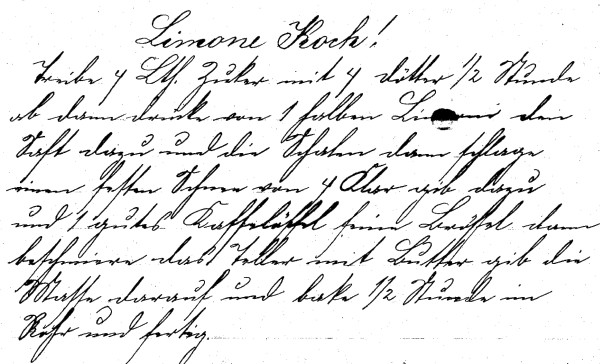 Limone Koch!
Treibe 4 Lth. Zuker mit 4 dötter 1/2 Stunde
ab dann drüke von 1 halben Limoni den
Saft dazu und die Schalen dann schlage
einen festen Schnee von 4 Klar gib dazu
und 1 gutes Kaffelöffel feine Brösel dann
beschmiere das Teller mit Butter gib die
Masse darauf und bake 1/2 Stunde im
Rohr und fertig.